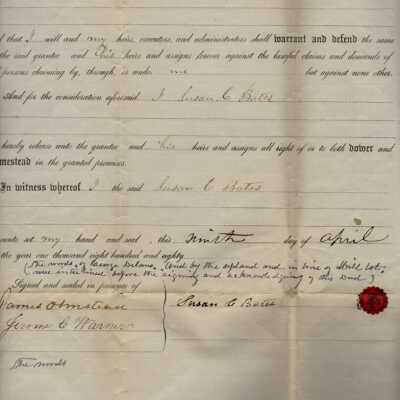 that I will and my heirs executors, and administrators shall warrant and defend the same
the said grantee and his heirs and assigns forever against the lawful claims and demands of
persons claiming by, through, or under me but against none other.
And for the consideration aforesaid I Susan C Bates
hereby release unto the grantee and his heirs and assigns all right of or to both dower and
mestead in the granted premises.
In witness whereof I the said Susan C Bates
unto at my hand and seal, this ninth day of April
the year one thousand eight hundred and eighty
(The words, of and by the upland and in line of
were interlined before the signing and acknowledging of this Deed)
Signed and sealed in presence of
James Olmstead
Susan C Bates
Jerome C Warner
The words